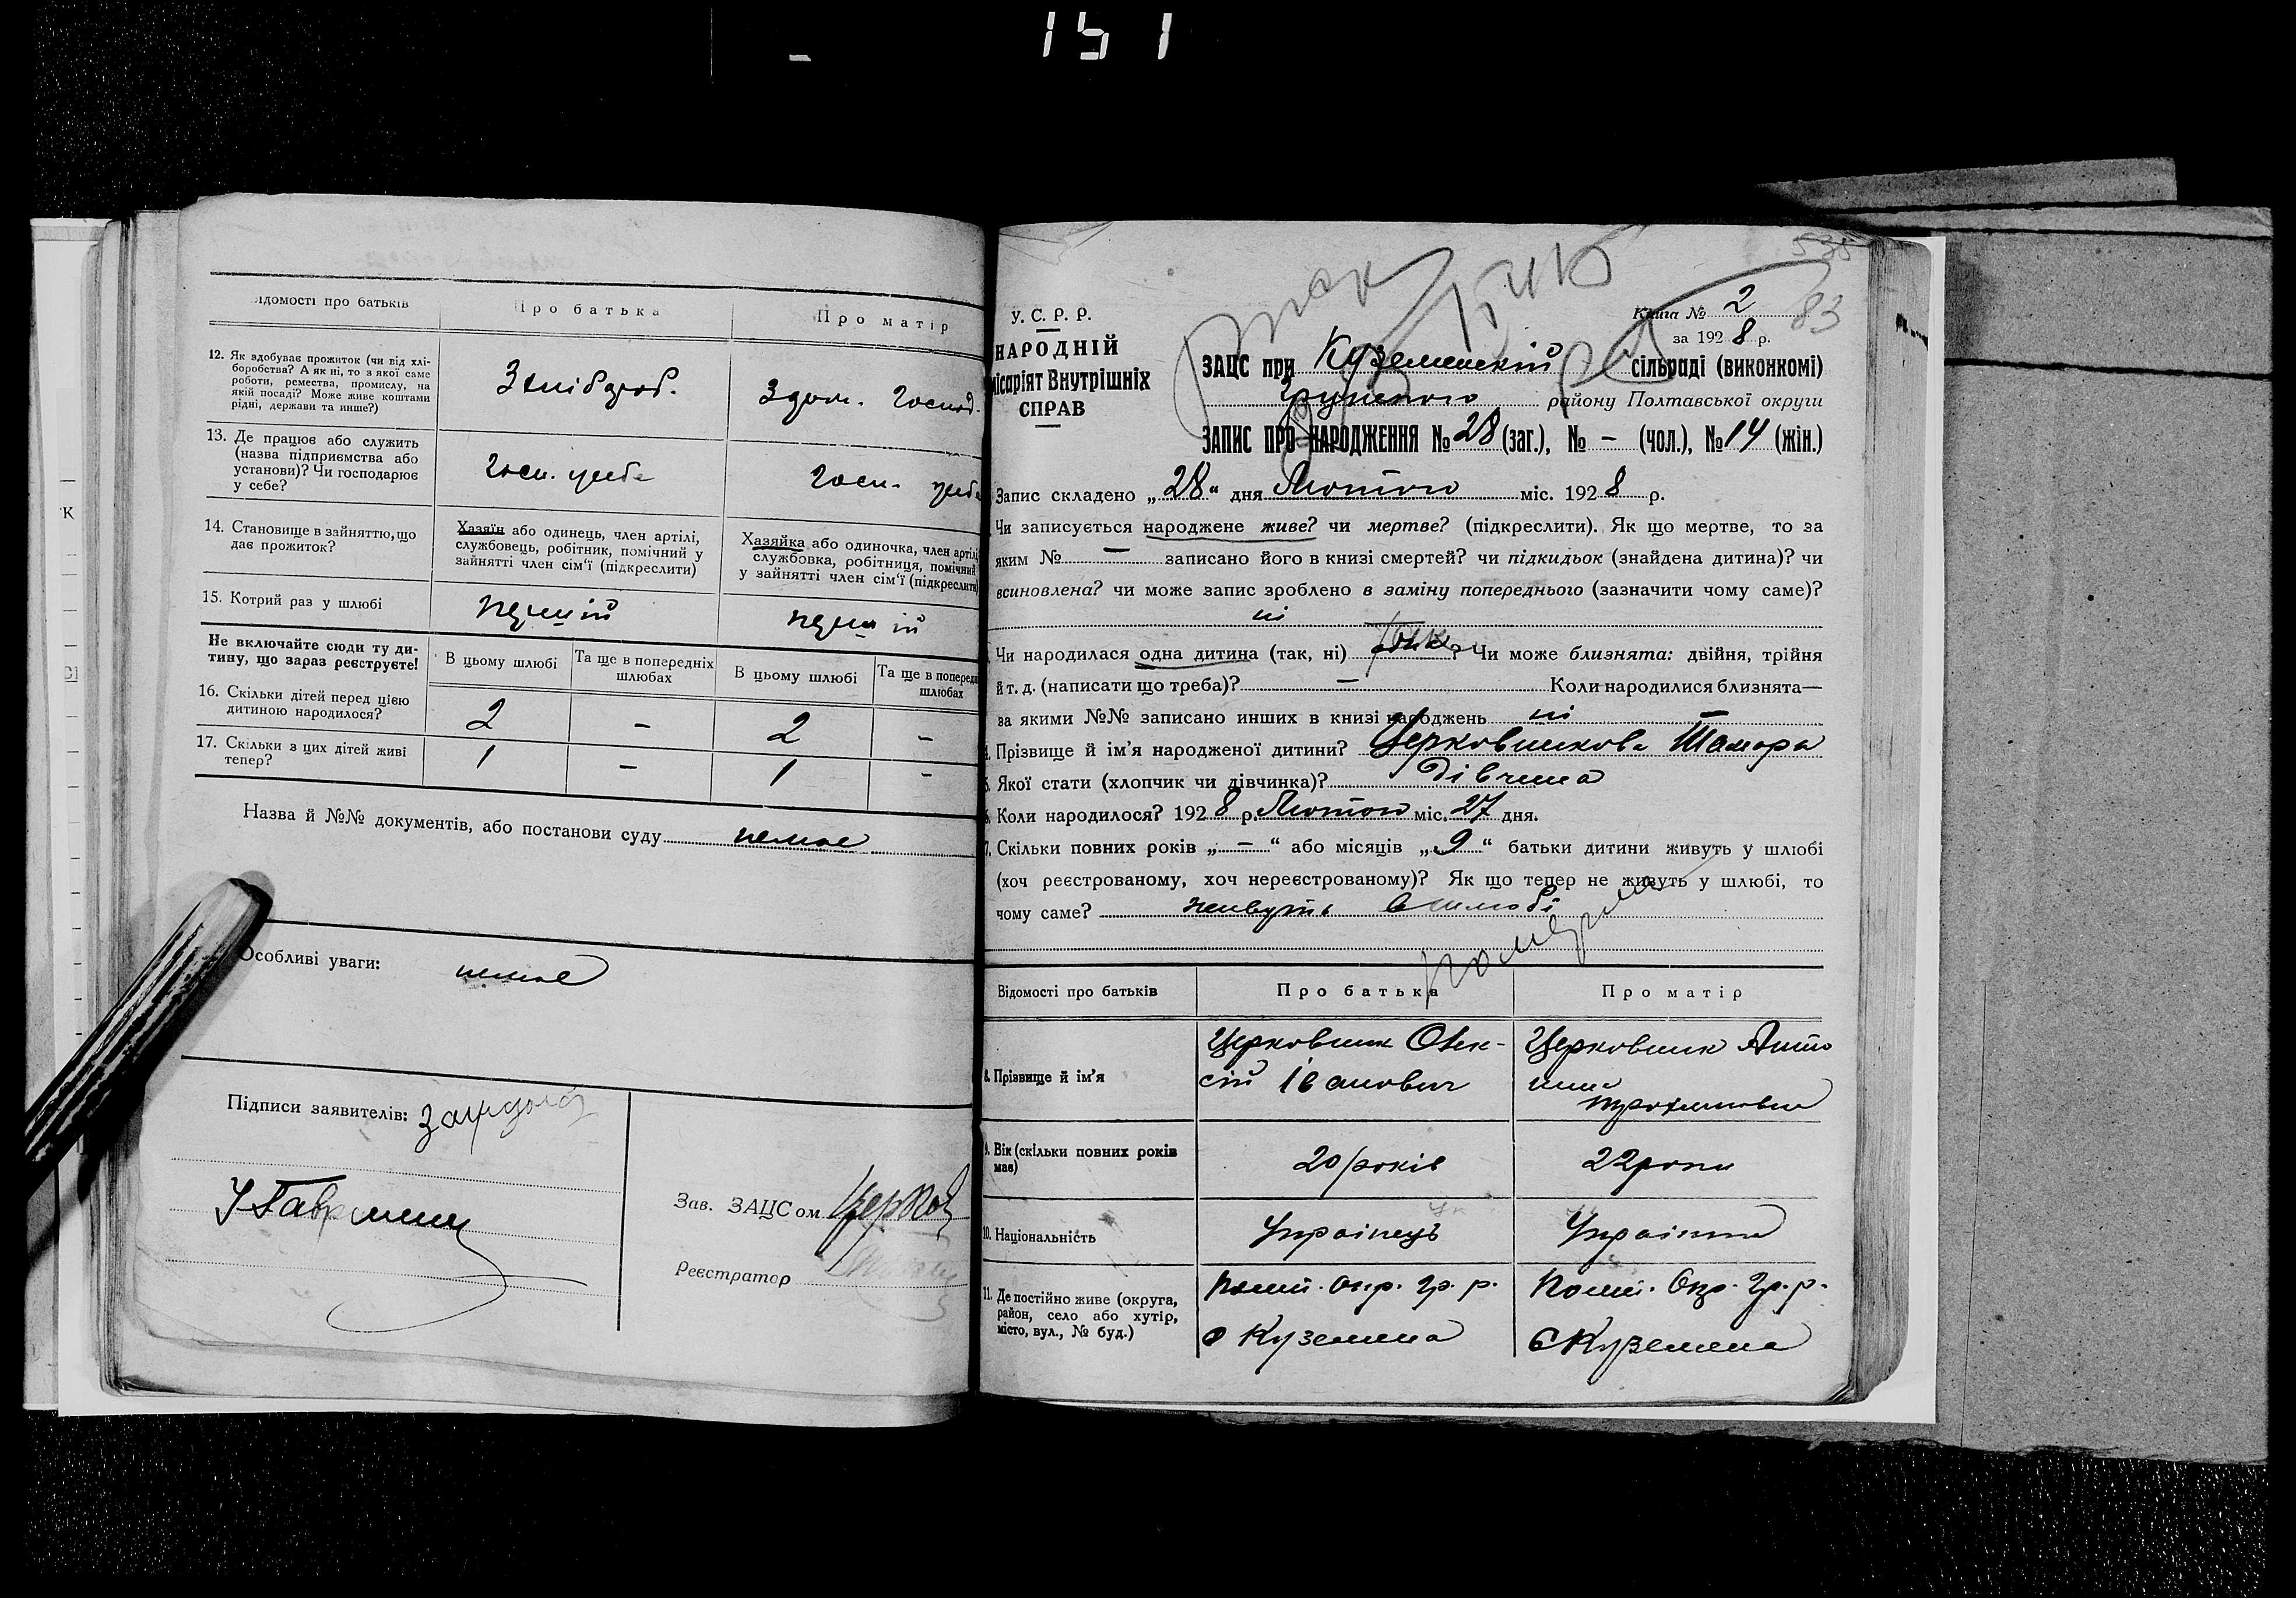 151
Відомості про батьків
Про батька
Про матір
12. Як здобуває прожиток (чи від хлі-
боробства? А як ні, то з якої саме
роботи, ремества, промислу, на
якій посаді? Може живе коштами
рідні, держави та инше?)
З хлібороб.
З дом. господ.
13. Де працює або служить
(назва підприємства або
установи)? Чи господарює
у себе?
госп. у себе
госп. у себе
14. Становище в зайняттю, що
дає прожиток?
Хазяїн або одинець, член артілі,
службовець, робітник, помічний у
зайнятті член сім'ї (підкреслити)
Хазяйка або одиночка, член артілі
службовка, робітниця, помічний
у зайнятті член сім'ї (підкреслити)
15. Котрий раз у шлюбі
перший
перший
Не включайте сюди ту ди-
тину, що зараз реєструєте!
В цьому шлюбі
Та ще в попередніх
шлюбах
В цьому шлюбі
Та ще в попередн
шлюбах
16. Скільки дітей перед цією
дитиною народилося?
2 - 2 -
17. Скільки з цих дітей живі
тепер?
1 - 1 -
Назва й №№ документів, або постанови суду немає
Особливі уваги: немає
Підписи заявителів:
Зав. ЗАЦСом Церков
Реєстратор
535
83
У. С. Р. Р.
НАРОДНІЙ
місаріят Внутрішніх
СПРАВ
Книга № 2
за 1928 р.
ЗАЦС при Куземенській сільраді (виконкомі)
Грунського району Полтавської округи
ЗАПИС ПРО НАРОДЖЕННЯ № 28 (заг.), № - (чол.), № 14 (жін.)
Запис складено „28“ дня Лютого міс. 1928 р.
Чи записується народжене живе? чи мертве? (підкреслити). Як що мертве, то за
яким № - записано його в книзі смертей? чи підкидьок (знайдена дитина)? чи
всиновлена? чи може запис зроблено в заміну попереднього (зазначити чому саме)?
ні
Чи народилася одна дитина (так, ні) ? Чи може близнята: двійня, трійня
й т. д. (написати що треба)? - Коли народилися близнята—
за якими №№ записано инших в книзі народжень ні -
4. Прізвище й ім'я народженої дитини? Церковникова Тамара
5. Якої стати (хлопчик чи дівчинка)? Дівчина
6. Коли народилося? 1928 р. Лютого міс. 27 дня.
7. Скільки повних років „-“ або місяців „9“ батьки дитини живуть у шлюбі
(хоч реєстрованому, хоч нереєстрованому)? Як що тепер не живуть у шлюбі, то
чому саме? живуть в шлюбі
померла
Відомості про батьків
Про батька
Про матір
8. Прізвище й ім'я
Церковник Олек-
сій Іванович
Церковник Анто
нина
Трохимовна
9. Вік (скільки повних років
має)
20 років
22 роки
10. Національність
Українець
Українка
11. Де постійно живе (округа,
район, село або хутір,
місто, вул., № буд.)
Полт. Окр. Гр. р.
с Куземена
Полт. Окр. Гр. р.
с Куземена